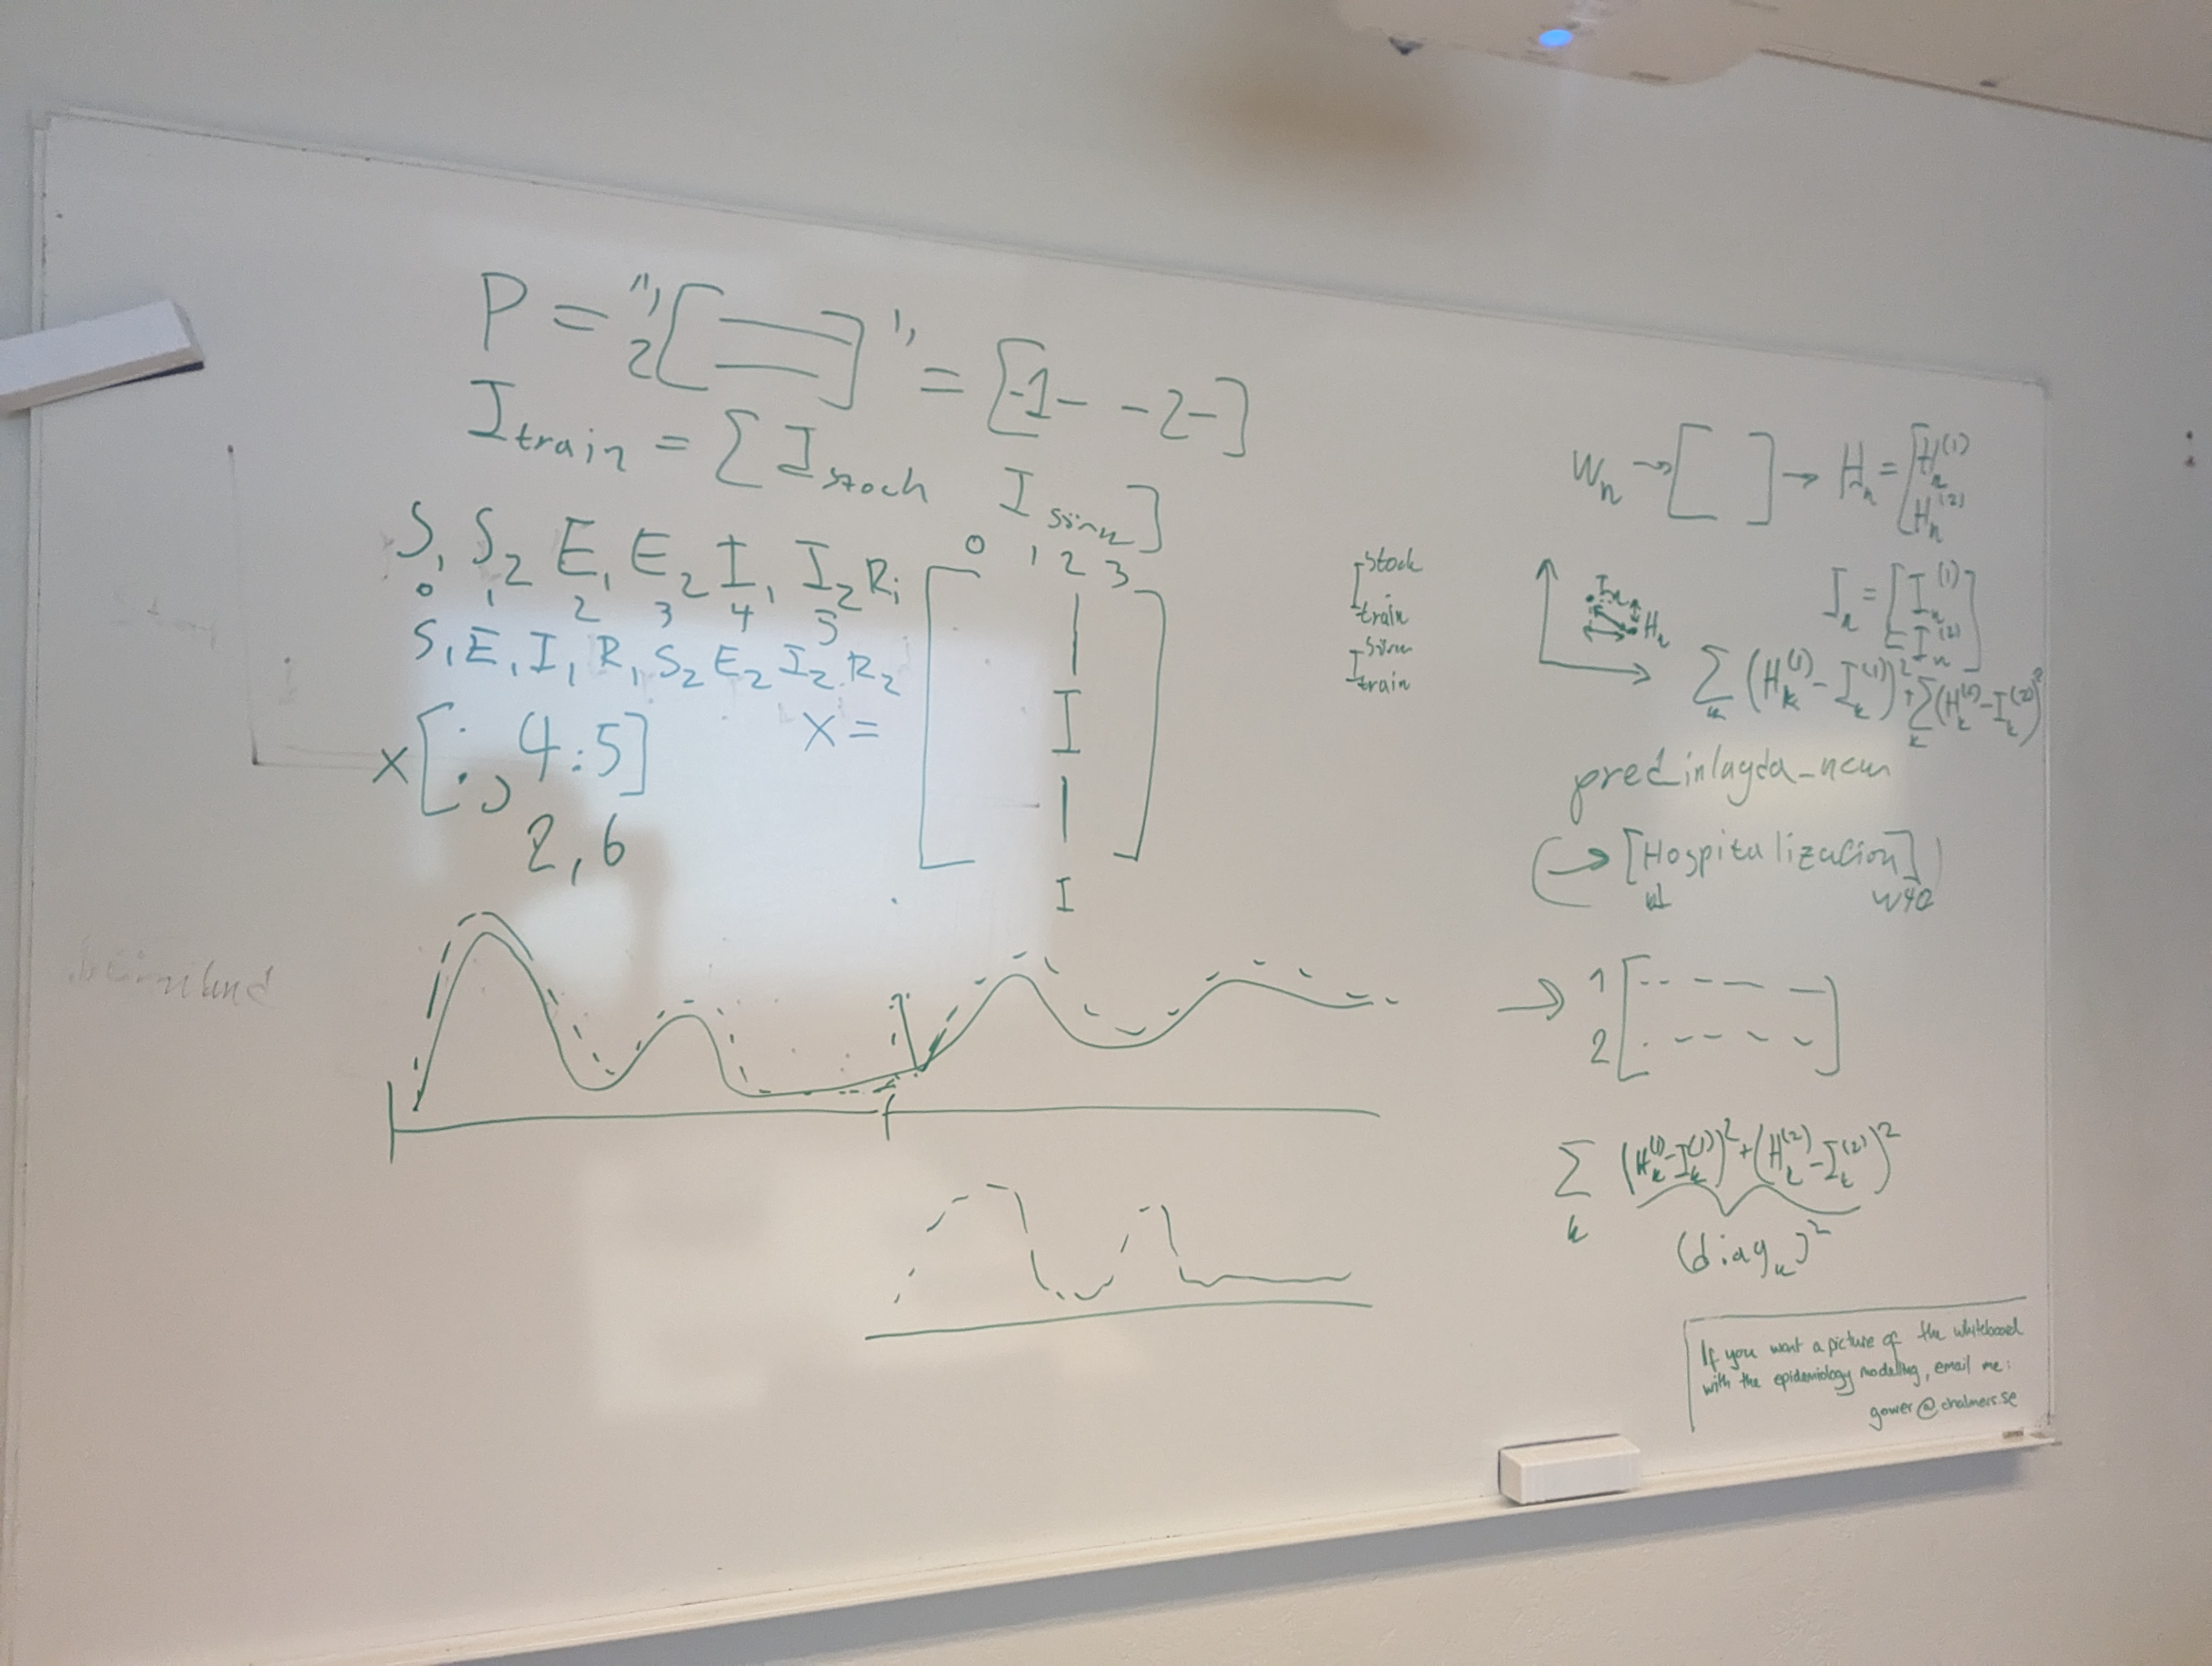 P = 2 [ ] = [-1- -2-]
I train = [ I stoch I sim ]
S₁ S₂ E₁ E₂ I₁ I₂ R₁
0 1 2 3 4 5
S₁ E₁ I₁ R₁ S₂ E₂ I₂ R₂
x[:, 4:5]
2, 6
X =
0 1 2 3
I
I
I stoch train
I sim train
Wₙ → [ ] → Hₙ = [Hₙ⁽¹⁾ Hₙ⁽²⁾]
Iₙ = [Iₙ⁽¹⁾ Iₙ⁽²⁾]
Iₙ
Hₙ
∑ₖ (Hₖ⁽¹⁾ - Iₖ⁽¹⁾)² + ∑ₖ (Hₖ⁽²⁾ - Iₖ⁽²⁾)²
pred inlagda_ncum
→ [Hospitalizacion]
w1 w40
→ 1
2
∑ₖ (Hₖ⁽¹⁾ - Iₖ⁽¹⁾)² + (Hₖ⁽²⁾ - Iₖ⁽²⁾)²
(diagₖ)²
If you want a picture of the whiteboard
with the epidemiology modelling, email me:
gower@chalmers.se